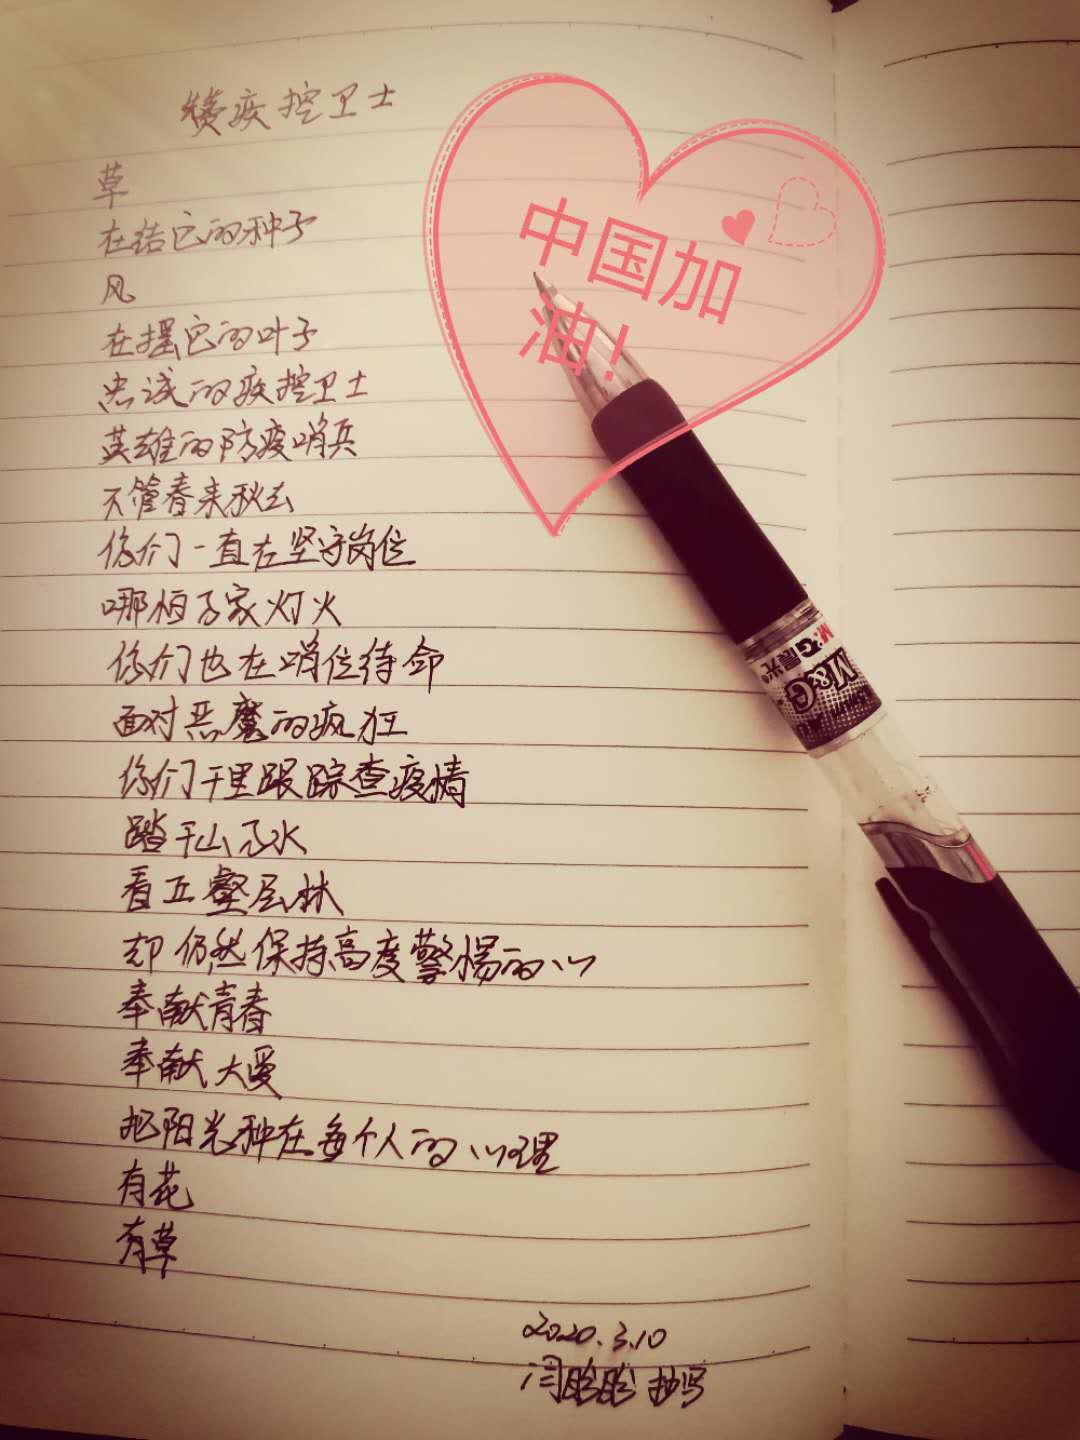 赞疾控卫士
草
在结它的种子
风
在摇它的叶子
忠诚的疾控卫士
英雄的防疫哨兵
不管春来秋去
你们一直在坚守岗位
哪怕万家灯火
你们也在哨位待命
面对恶魔的疯狂
你们千里跟踪查疫情
踏千山万水
看丘壑层林
却仍然保持高度警惕的心
奉献青春
奉献大爱
把阳光种在每个人的心理
有花
有草
2020.3.10
闫 抄写
中国加
油!
M&G晨光
M&G